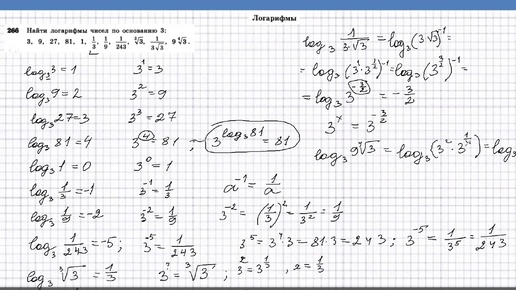 Логарифмы
266 Найти логарифмы чисел по основанию 3:
3, 9, 27, 81, 1, 1/3, 1/9, 1/243, ∛3, 1/(3√3), 9 ∜3.
log₃ 3 = 1    3¹ = 3
log₃ 9 = 2    3² = 9
log₃ 27 = 3    3³ = 27
log₃ 81 = 4    3⁴ = 81 ;    3^(log₃ 81) = 81
log₃ 1 = 0    3⁰ = 1
log₃ 1/3 = -1    3⁻¹ = 1/3    a⁻¹ = 1/a
log₃ 1/9 = -2    3⁻² = 1/9    3⁻² = (1/3)² = 1/3² = 1/9
log₃ 1/243 = -5 ;    3⁻⁵ = 1/243    3⁵ = 3⁴·3 = 81·3 = 243 ;    3⁻⁵ = 1/3⁵ = 1/243
log₃ ∛3 = 1/3    3^? = ∛3 ;    3^? = 3^(1/3) , ? = 1/3
log₃ 1/(3·√3) = log₃ (3√3)⁻¹
= log₃ (3¹·3^(1/2))⁻¹ = log₃ (3^(3/2))⁻¹ =
= log₃ 3^(-3/2) = -3/2
3ˣ = 3^(-3/2)
log₃ 9∜3 = log₃ (3²·3^(1/4)) = log₃